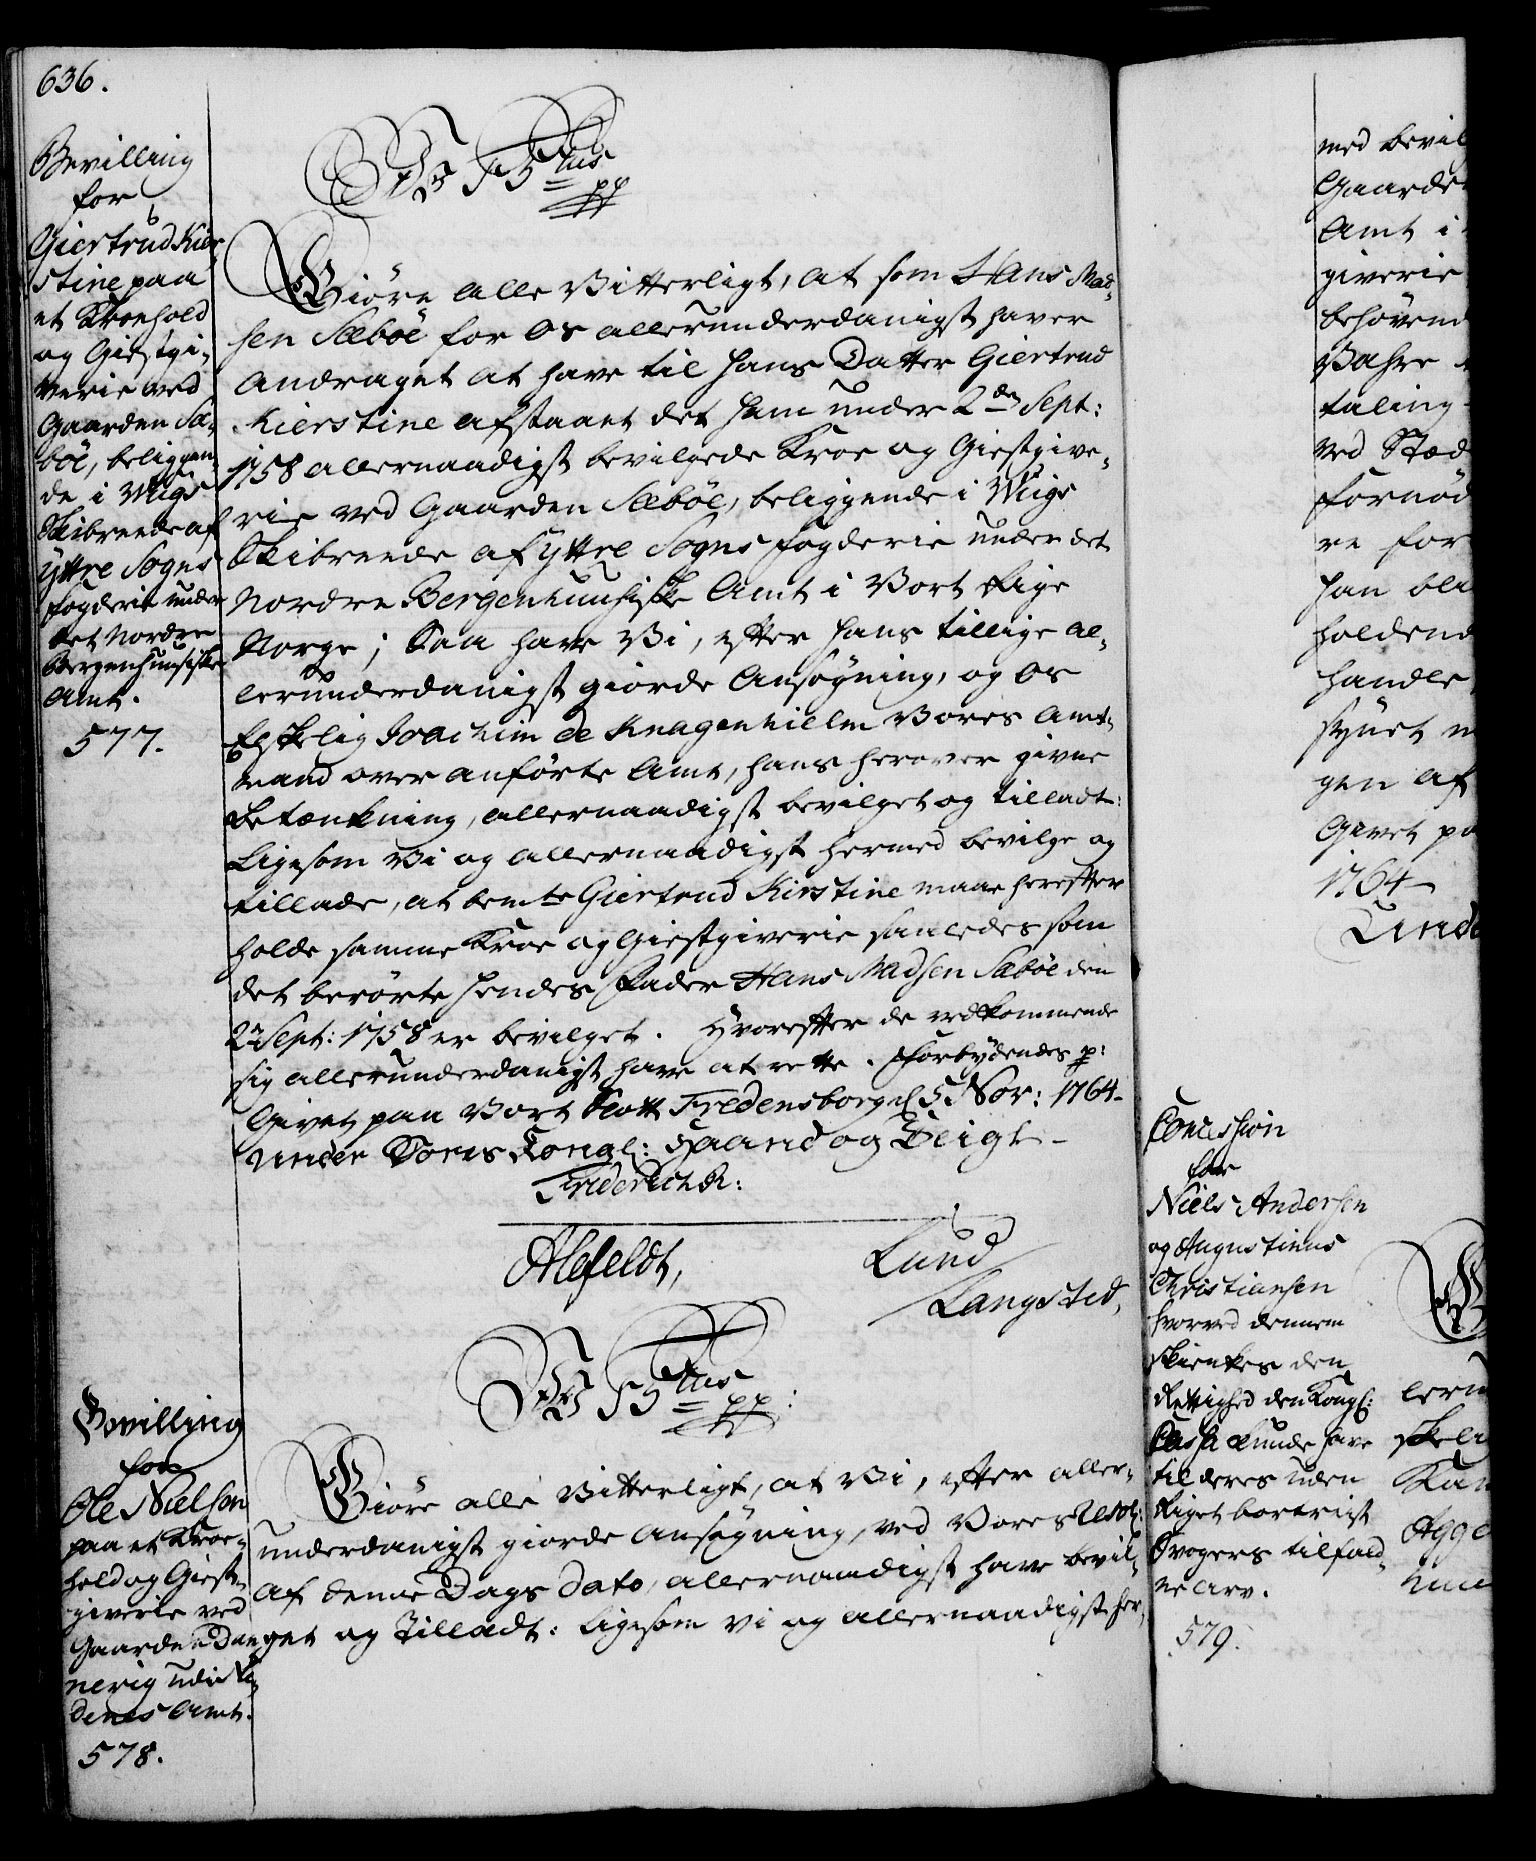 636.
Bevilling
for
Giertrud Kier
stine paa
et Kroehold
og Giestgi-
verie ved
Gaarden Sæ-
böe, beliggen-
de i Wiigs
Skibreede af
Yttre Sogns
Fogderie under
det Nordre
Bergenhuusiske
Amt.
577.
F5tus
pp
Giöre alle Vitterligt, at som Hans Mad-
sen Sæböe for Os allerunderdanigst haver
andraget at have til hans Datter Giertrud
Kierstine afstaaet det ham under 2den Sept:
1758 allernaadigst bevilgede Kroe og Giestgive-
rie ved Gaarden Sæböe, beliggende i Wiigs
Skibreede af Yttre Sogns Fogderie under det
Nordre Bergenhuusiske Amt i Vort Rige
Norge; Saa have Vi, efter hans tillige al-
lerunderdanigst giorde Ansøgning, og Os
Elskelig Joachim de Knagenhielm Vores Amt-
mand over anförte Amt, hans herover givne
Betænkning, allernaadigst bevilget og tilladt:
Ligesom Vi og allernaadigst hermed bevilge og
tillade, at bemte Giertrud Kirstine maae herefter
holde samme Kroe og Giestgiverie saaledes som
det berörte hendes Fader Hans Madsen Sæböe den
2n Sept: 1758 er bevilget. Hvorefter de vedkommende
sig allerunderdanigst have at rette. Forbydendes p:
Givet paa Vort Slott Fredensborg d 5 Nov: 1764.
Under Vores Kongl: Haand og Zeigl.
Friderich R:
Alefeldt,
Lund
Langsted,
F5tus
pp:
Bevilling
for
Ole Nielsen
paa et Kroe-
hold og Giest-
giverie ved
Gaarden Dan
nevig udi Ne
denes Amt.
578.
Giöre alle Vitterligt, at Vi, efter aller-
underdanigst giorde Ansøgning, ved Vores Resol:
af denne Dags Dato, allernaadigst have bevil-
get og Tilladt: Ligesom Vi og allernaadigst her-
med bevil
Gaarde
Amt i
giverie
behövend
Vahre
taling
ved Stæd
fornöd
re for
han bli
holdend
handle
synet
gen af
Givet pa
1764
Und
Concession
for
Niels Andersen
og Augustinus
Christiansen
hvorved dennem
skienkes den
Rettighed den Kongl:
Cassa kunde have
til deres uden
Riget bortreist
Svogers tilfald-
ne Arv.
579.
G
leru
skeli
Kam
Agge
huu